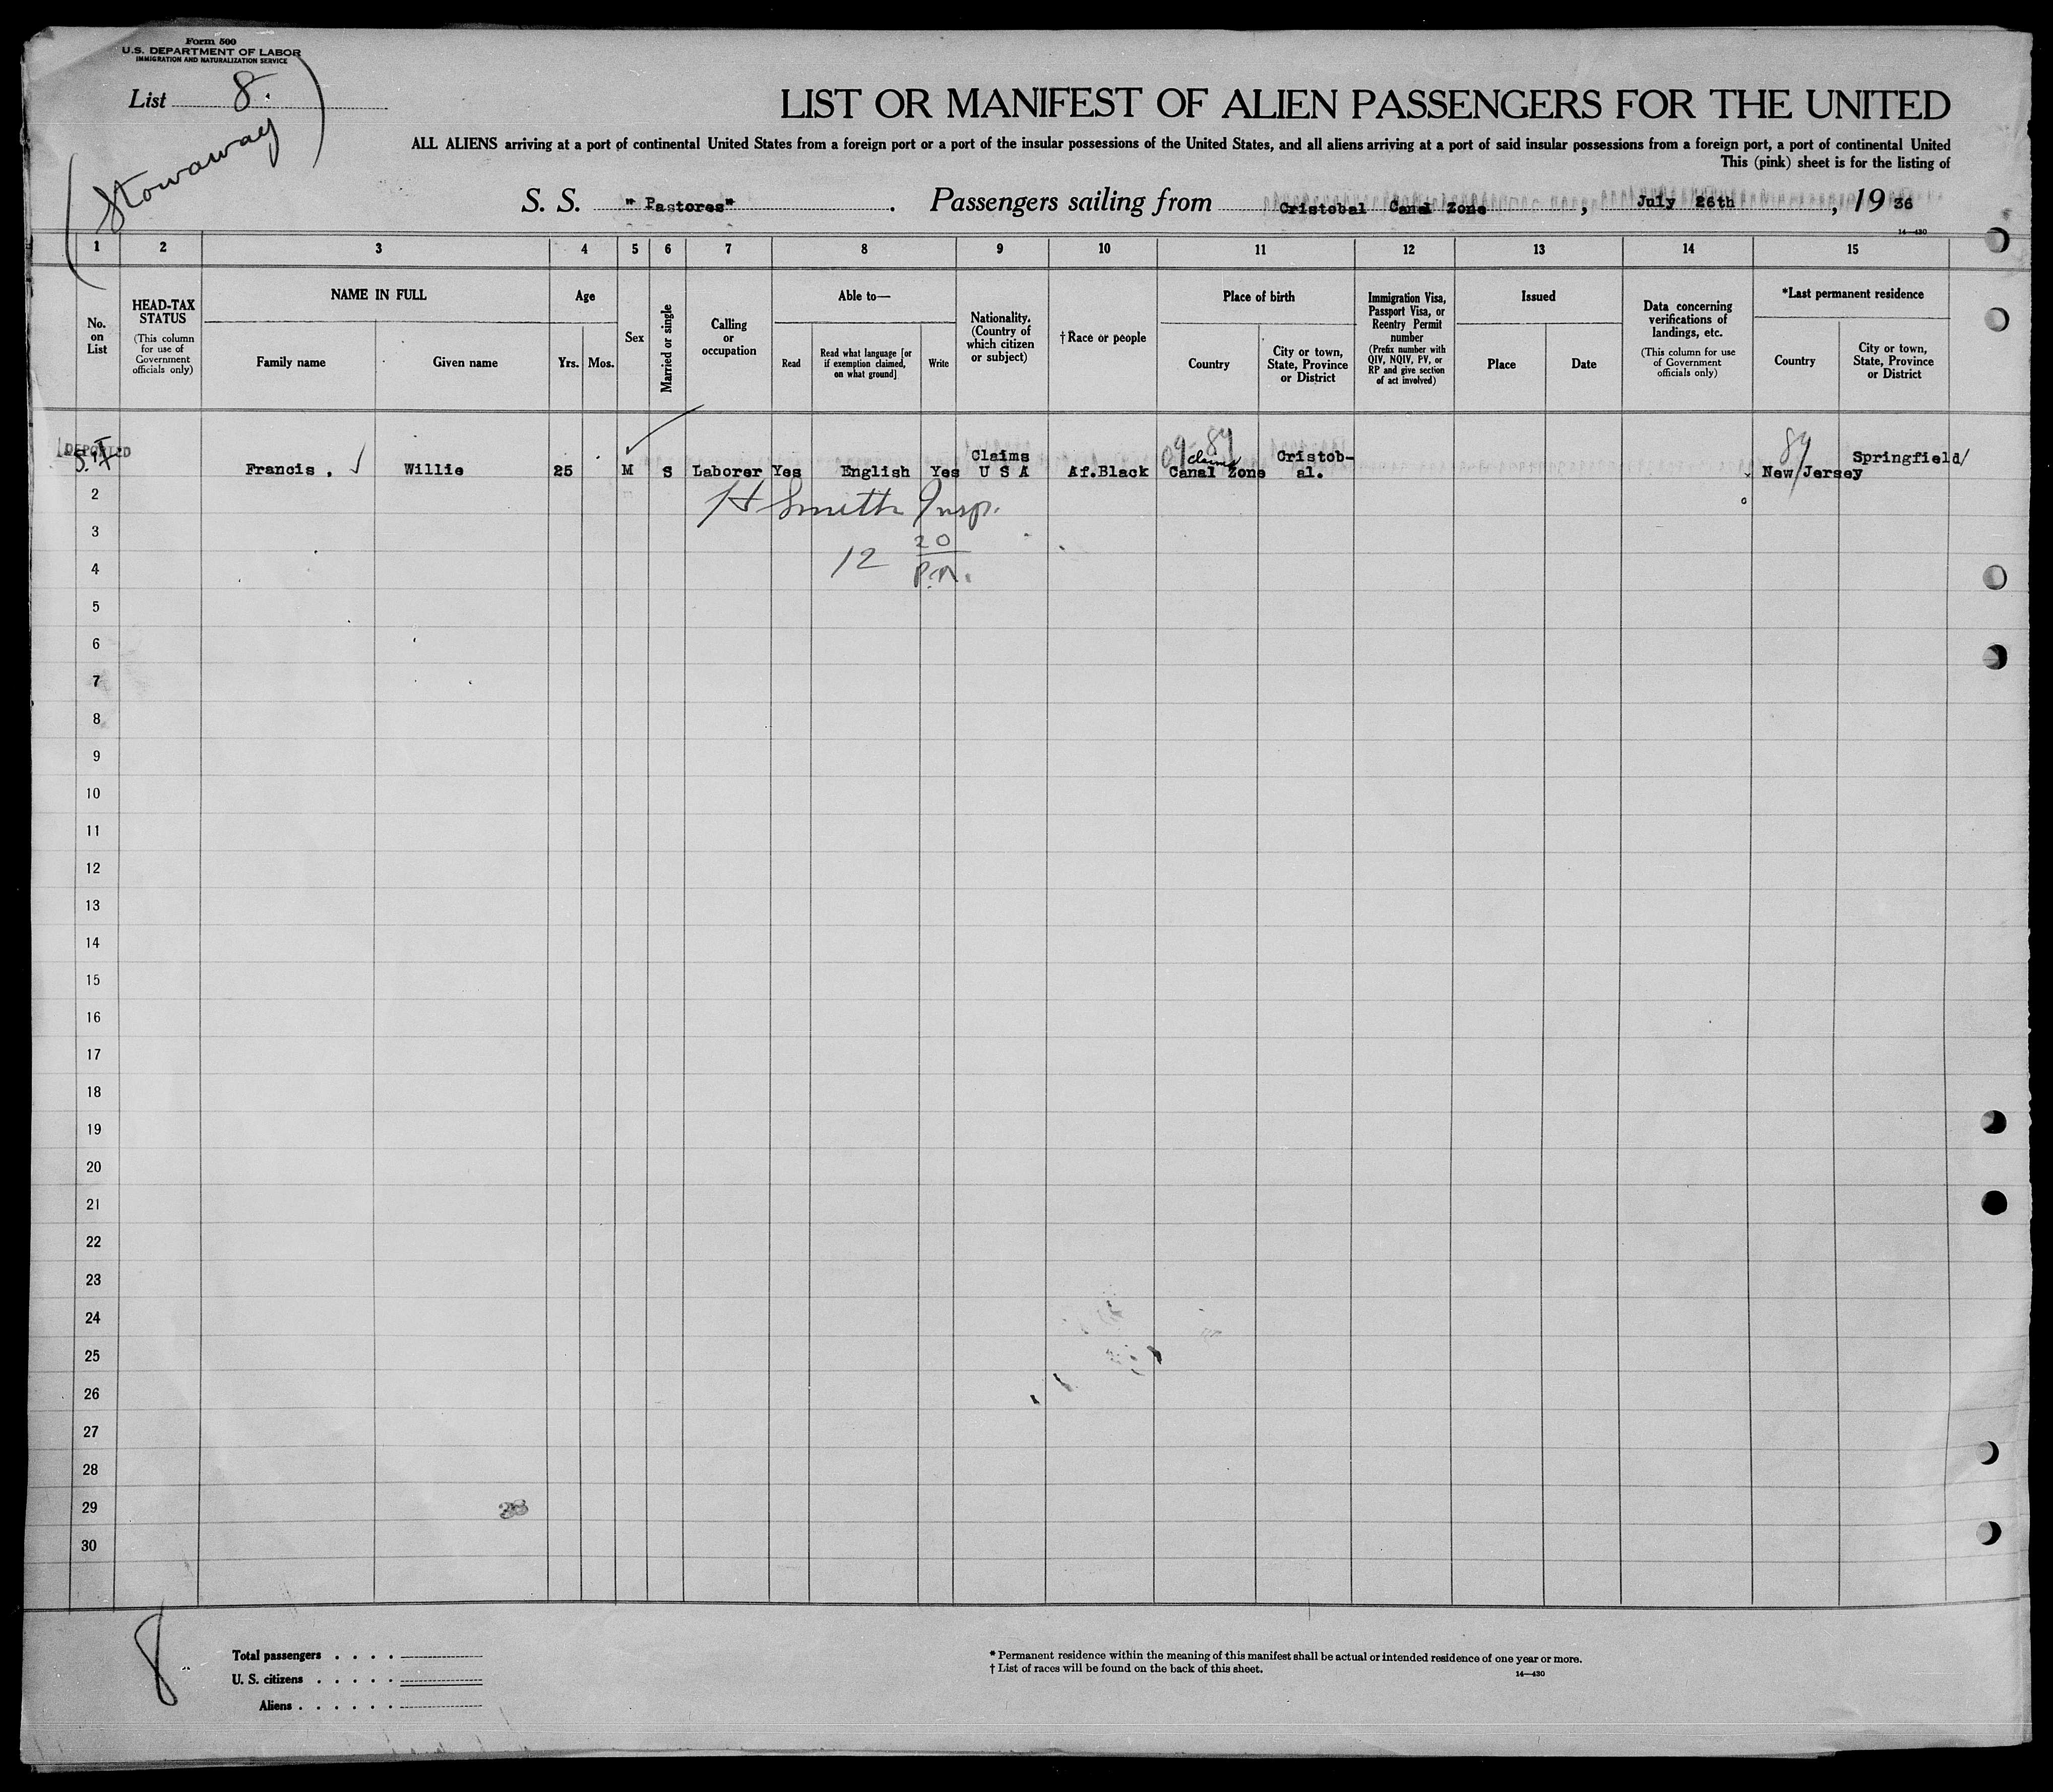 Form 500
U.S. DEPARTMENT OF LABOR
IMMIGRATION AND NATURALIZATION SERVICE
List 8.
(Stowaway)
LIST OR MANIFEST OF ALIEN PASSENGERS FOR THE UNITED
ALL ALIENS arriving at a port of continental United States from a foreign port or a port of the insular possessions of the United States, and all aliens arriving at a port of said insular possessions from a foreign port, a port of continental United
This (pink) sheet is for the listing of
S. S. "Pastores" . Passengers sailing from Cristobal Canal Zone , July 26th , 1936
14—430
1 2 3 4 5 6 7 8 9 10 11 12 13 14 15
No. on List
HEAD-TAX STATUS
(This column for use of Government officials only)
NAME IN FULL
Family name
Given name
Age
Yrs. Mos.
Sex
Married or single
Calling or occupation
Able to—
Read
Read what language [or if exemption claimed, on what ground]
Write
Nationality. (Country of which citizen or subject)
†Race or people
Place of birth
Country
City or town, State, Province or District
Immigration Visa, Passport Visa, or Reentry Permit number
(Prefix number with QIV, NQIV, PV, or RP and give section of act involved)
Issued
Place
Date
Data concerning verifications of landings, etc.
(This column for use of Government officials only)
*Last permanent residence
Country
City or town, State, Province or District
DEPORTED
89 89
Claims claims Cristob- Springfield/
Francis . Willie 25 M S Laborer Yes English Yes U S A Af.Black Canal Zone al. New Jersey
2
H Smith Insp.
3
12 20
4
P.M.
5
6
7
8
9
10
11
12
13
14
15
16
17
18
19
20
21
22
23
24
25
26
27
28
29
30
8
Total passengers . . . .
U. S. citizens . . . . .
Aliens . . . . . .
* Permanent residence within the meaning of this manifest shall be actual or intended residence of one year or more.
† List of races will be found on the back of this sheet.
14—430